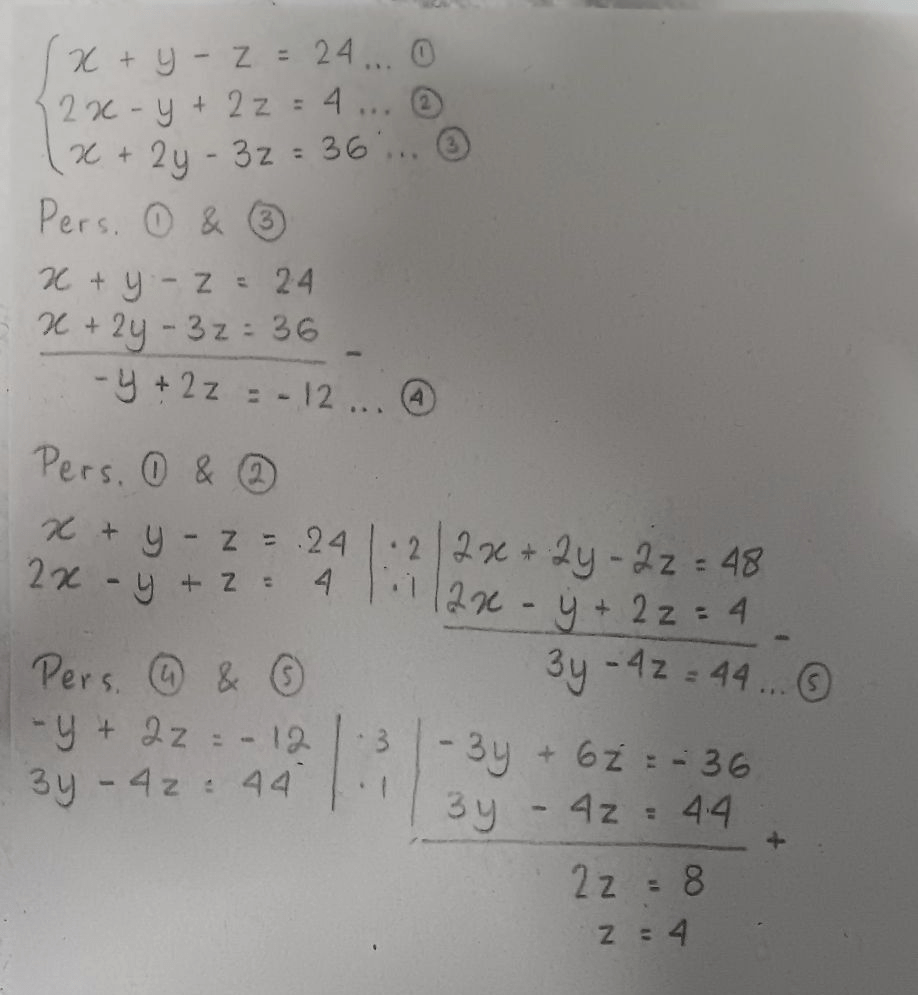 x + y - z = 24 ... ①
2x - y + 2z = 4 ... ②
x + 2y - 3z = 36 ... ③
Pers. ① & ③
x + y - z = 24
x + 2y - 3z = 36
-
-y + 2z = -12 ... ④
Pers. ① & ②
x + y - z = 24 | · 2 | 2x + 2y - 2z = 48
2x - y + z = 4 | · 1 | 2x - y + 2z = 4
-
3y - 4z = 44 ... ⑤
Pers. ④ & ⑤
-y + 2z = -12 | · 3 | -3y + 6z = -36
3y - 4z = 44 | · 1 | 3y - 4z = 44
+
2z = 8
z = 4